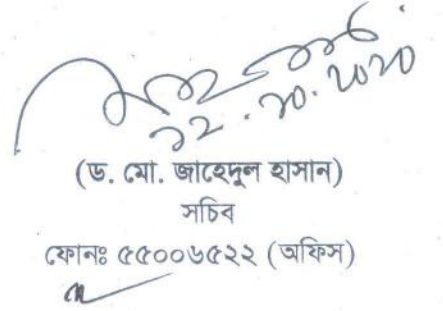 ১২.১০.২০২০
(ড. মো. জাহেদুল হাসান)
সচিব
ফোনঃ ৫৫০০৬৫২২ (অফিস)